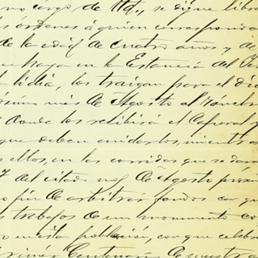 no cargo de Ud., se digne libra
órdenes á quien corresponda
de la edad de cuatro años y de
en Hayo en la Estancia del
lidia, los traigan para el día
mes de Agosto al
donde los recibirá el Caporal
que deben cuidarlos, mientras
ellos, en las corridas que se dará
del citado mes de Agosto próxi
fin de arbitrar fondos con que
trabajos de un monumento co
en esta población, con que celebra
primer Centenario de nuestra